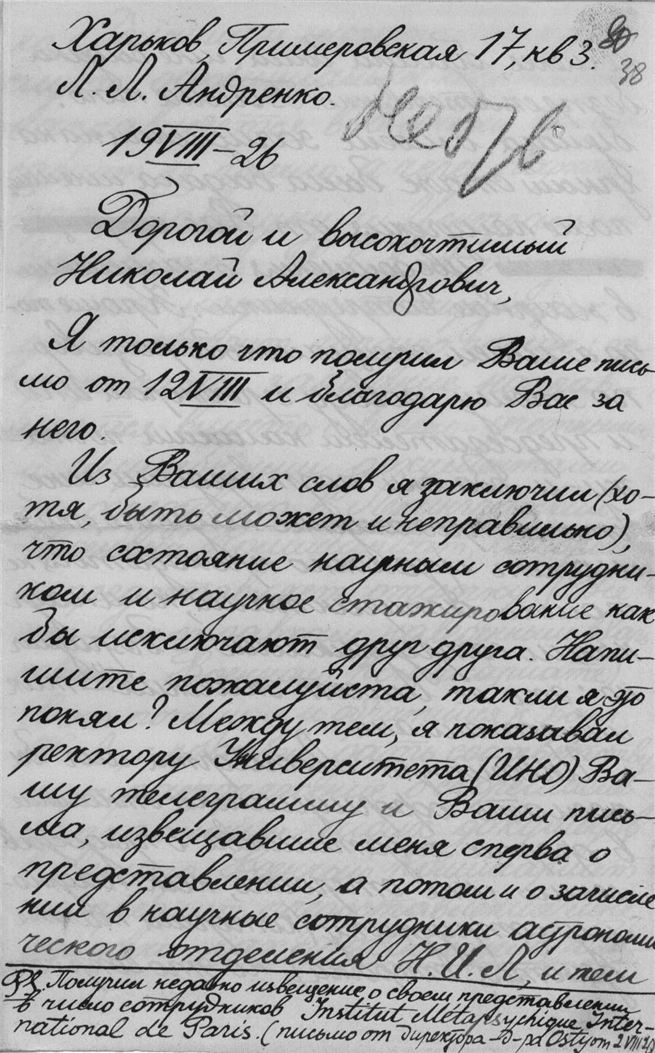 Харьков, Примеровская 17, кв 3.
38
Л. Л. Андренко.
19 VIII – 26
Дорогой и высокочтимый
Николай Александрович,
Я только что получил Ваше пись-
мо от 12 VIII и благодарю Вас за
него.
Из Ваших слов я заключил (хо-
тя, быть может и неправильно),
что состояние научным сотрудни-
ком и научное стажирование как
бы исключают друг друга. Напи-
шите пожалуйста, так ли я это
понял? Между тем, я показывал
ректору Университета (ИНО) Ва-
шу телеграмму и Ваши пись-
ма, извещавшие меня сперва о
представлении, а потом и о зачисле
нии в научные сотрудники астрономи
ческого отделения Н.И.Л, и тем
Получил недавно извещение о своем представлении
в число сотрудников Institut Métapsychique Inter-
national de Paris. (письмо от директора д-ра Osty от 2 VIII